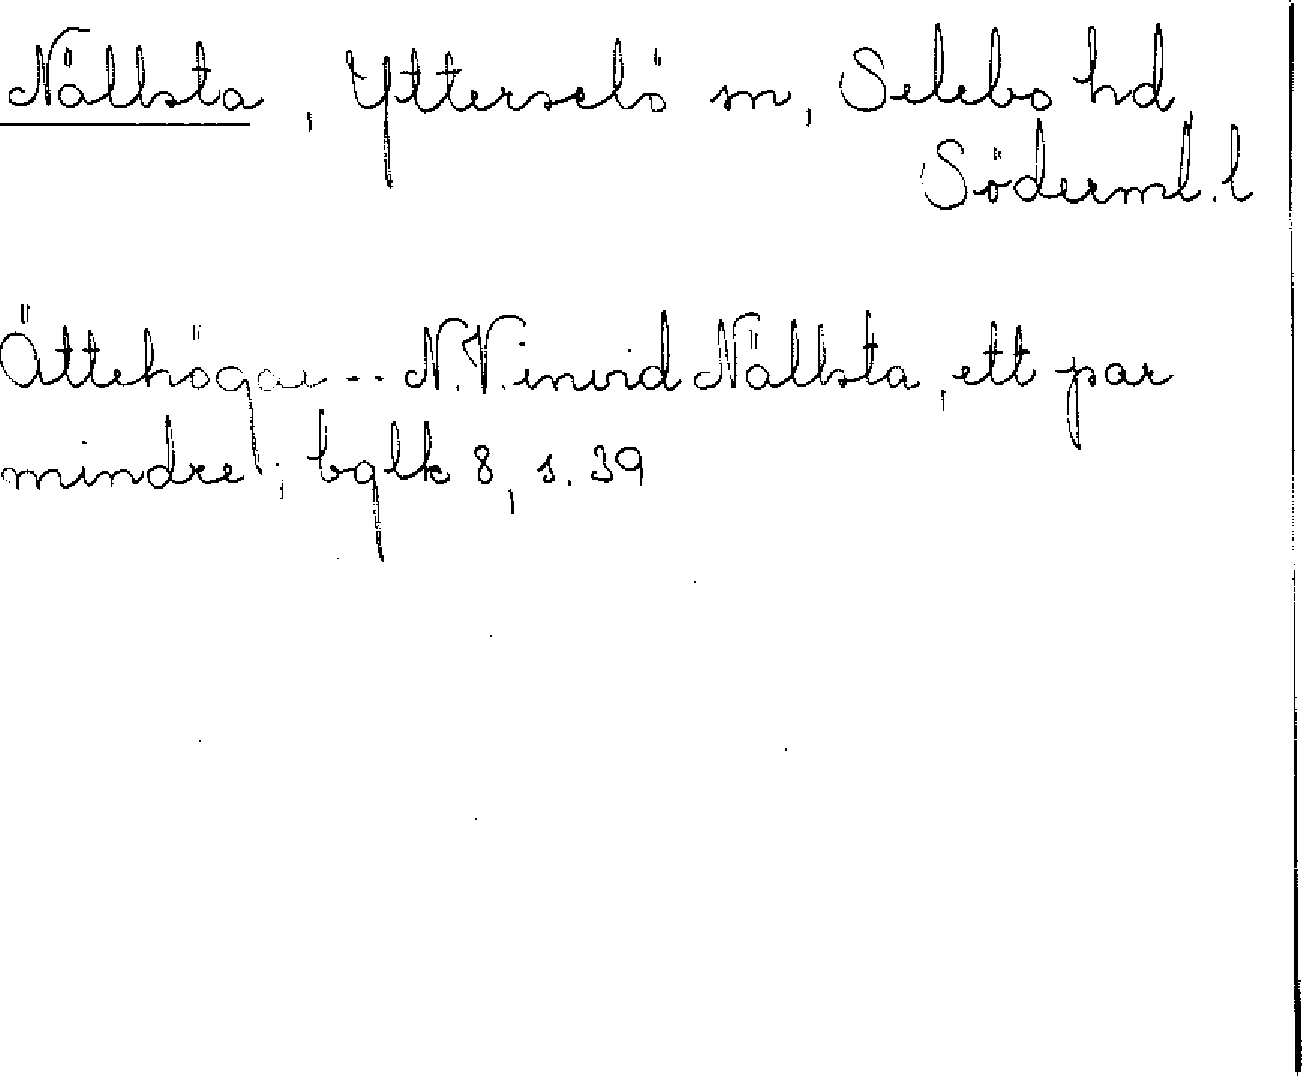 Nällsta, Ytterselö sn, Selebo hd,
Söderml. l
Ättehögar -- N.V. invid Nällsta, ett par
mindre; bglk 8, s. 39